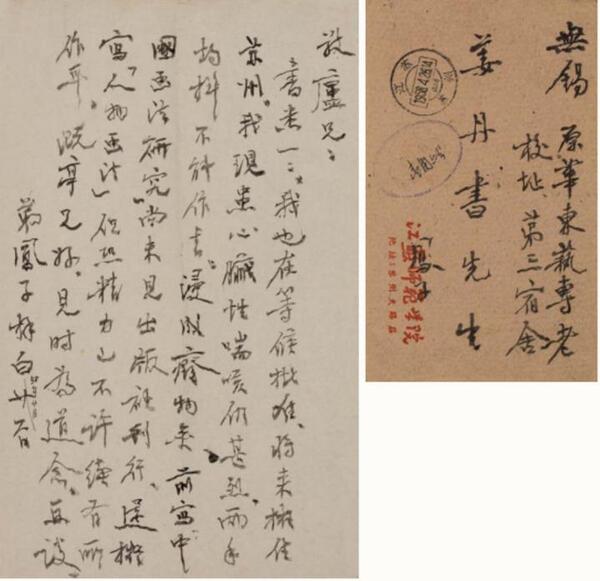 敬廬兄：
書悉一二。我也在等候批准，將來擬住
蘇州。我現患心臟性喘咳俱甚烈，兩手
均抖不能作書，漫成廢物矣。前寫中
國畫法研究尚未見出版社刊行。還擬
寫「人物畫法」但恐精力已不許續有所
作耳。既亭兄好，見時為道念。再談
弟鳳子拜白
無錫 原華東藝專老
校址，第三宿舍
姜丹書先生
江蘇師範學院
地址：蘇州天賜莊
1958.4.26.14